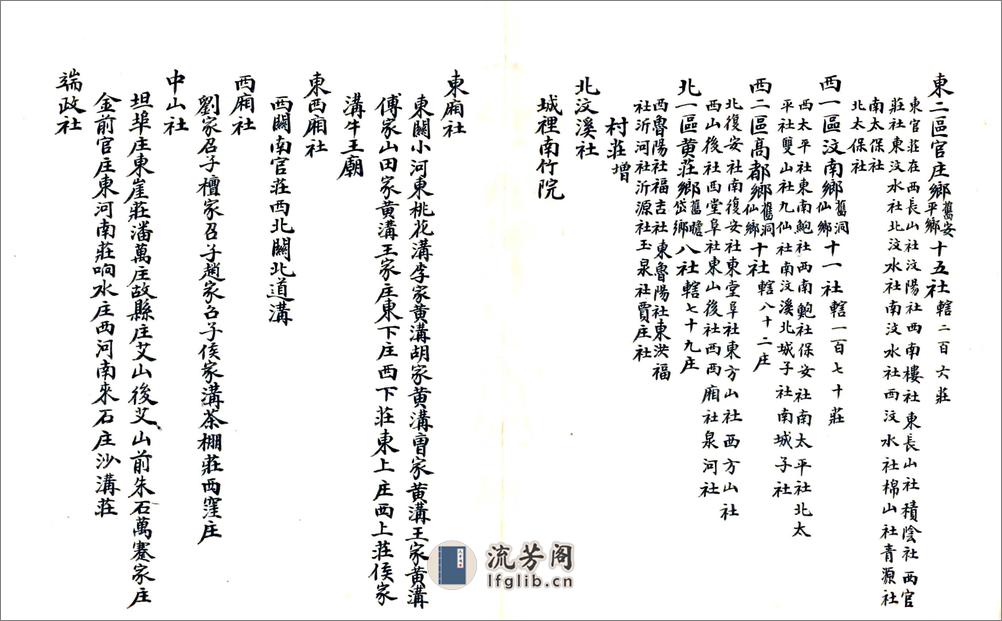 東二區官庄鄉舊安平鄉十五社轄二百六莊
東官莊在西長山社汶陽社西南樓社東長山社積陰社西官
莊社東汶水社北汶水社南汶水社西汶水社棉山社青源社
南太保社
北太保社
西一區汶南鄉舊洞仙鄉十一社轄一百七十莊
西太平社東南鮑社西南鮑社保安社南太平社北太
平社雙山社九仙社南汶溪北城子社南城子社
西二區高都鄉舊洞仙鄉十社轄八十二庄
北復安社南復安社東堂阜社東方山社西方山社
西山後社西堂阜社東山後社西西廂社泉河社
北一區黄莊鄉舊瞻岱鄉八社轄七十九庄
西魯陽社福吉社東魯陽社東洪福
社沂河社沂源社玉泉社賈庄社
村莊增
北汶溪社
城裡南竹院
東廂社
東關小河東桃花溝李家黄溝胡家黄溝曺家黄溝王家黄溝
傅家山田家黄溝王家庄東下庄西下莊東上庄西上莊侯家
溝牛王廟
東西廂社
西關南官莊西北關北道溝
西廂社
劉家召子檀家召子趙家召子侯家溝茶棚莊西窪庄
中山社
坦埠庄東崖莊潘萬庄故縣庄艾山後艾山前朱石萬蹇家庄
金前官庄東河南莊响水庄西河南來石庄沙溝莊
端政社
流芳阁
lfglib.cn